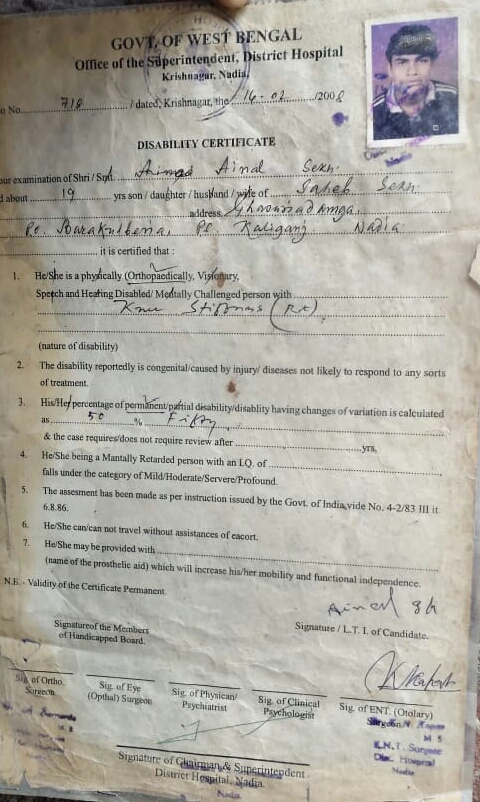 GOVT. OF WEST BENGAL
Office of the Superintendent, District Hospital
Krishnagar, Nadia.
o No. 718 / dated, Krishnagar, the 14-02 /2008
DISABILITY CERTIFICATE
our examination of Shri / Smt. Ainal Sekh.
d about 19 yrs son / daughter / husband / wife of Saheb Sekh.
address
Po. Ps. Kaliganj Nadia
it is certified that :
1. He/She is a physically (Orthopaedically, Visionary,
Speech and Heating Disabled/ Mentally Challenged person with
Knee Stiffness (Rt).
(nature of disability)
2. The disability reportedly is congenital/caused by injury/ diseases not likely to respond to any sorts
of treatment.
3. His/Her percentage of permanent/partial disability/disablity having changes of variation is calculated
as 50 % Fifty
& the case requires/does not require review after yrs.
4. He/She being a Mantally Retarded person with an I.Q. of
falls under the category of Mild/Hoderate/Servere/Profound.
5. The assesment has been made as per instruction issued by the Govt. of India, vide No. 4-2/83 III it
6.8.86.
6. He/She can/can not travel without assistances of eacort.
7. He/She may be provided with
(name of the prosthelic aid) which will increase his/her mobility and functional independence.
N.B. - Validity of the Certificate Permanent.
Ainal Sk
Signatureof the Members
of Handicapped Board.
Signature / L.T. I. of Candidate.
Sig. of Ortho.
Surgeon
Sig. of Eye
(Opthal) Surgeon
Sig. of Physican/
Psychiatrist
Sig. of Clinical
Psychologist
Sig. of ENT. (Otolary)
Surgeon
M S
E.N.T. Surgeon
Dist. Hospital
Nadia
Signature of Chairman & Superintendent
District Hospital, Nadia.
Nadia.